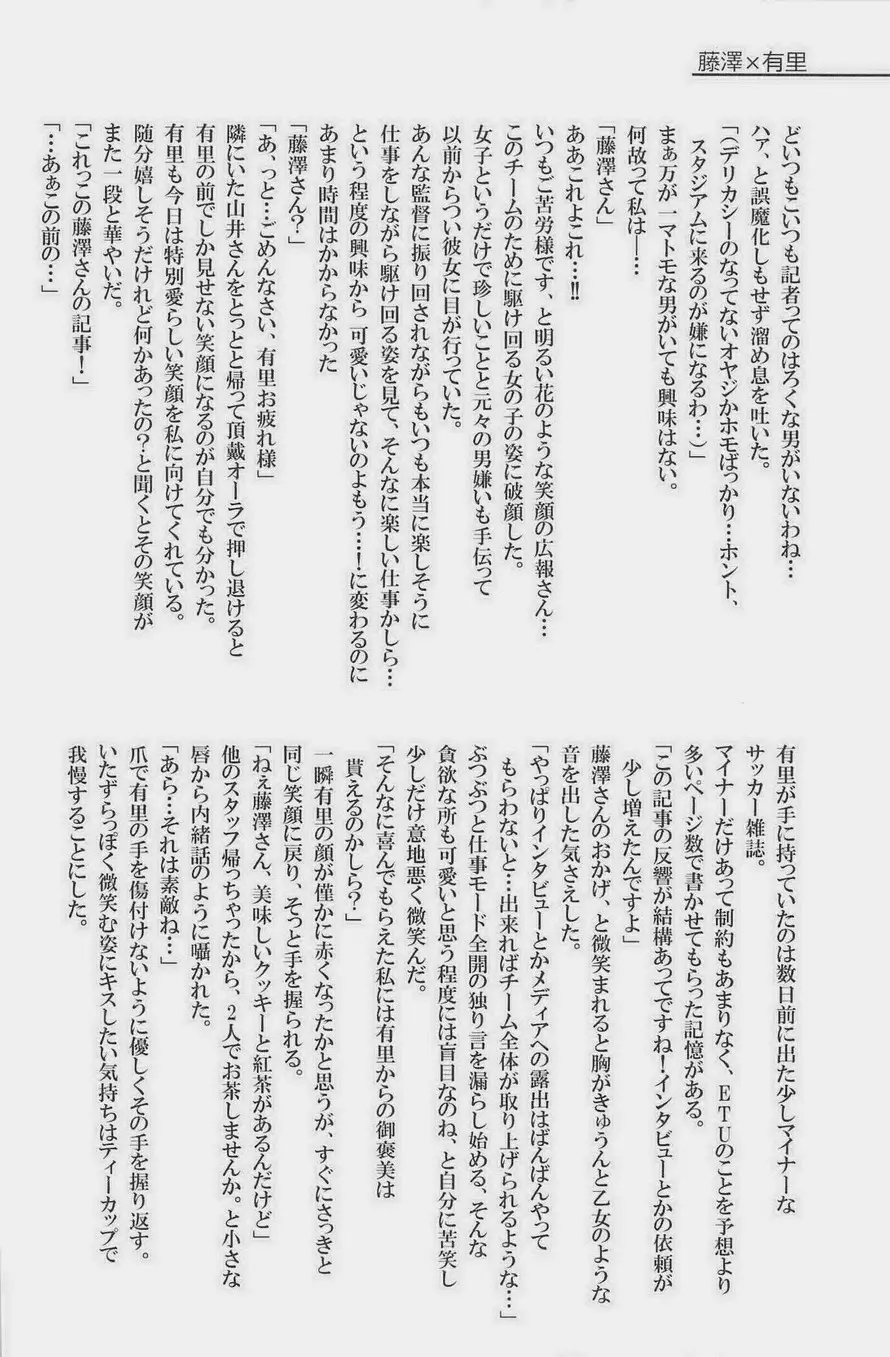 藤澤×有里
どいつもこいつも記者ってのはろくな男がいないわね…
ハァ、と誤魔化しもせず溜め息を吐いた。
「（デリカシーのなってないオヤジかホモばっかり…ホント、
スタジアムに来るのが嫌になるわ…）」
まぁ万が一マトモな男がいても興味はない。
何故って私は―…
「藤澤さん」
ああこれよこれ…!!
いつもご苦労様です、と明るい花のような笑顔の広報さん…
このチームのために駆け回る女の子の姿に破顔した。
女子というだけで珍しいことと元々の男嫌いも手伝って
以前からつい彼女に目が行っていた。
あんな監督に振り回されながらもいつも本当に楽しそうに
仕事をしながら駆け回る姿を見て、そんなに楽しい仕事かしら…
という程度の興味から 可愛いじゃないのよもう…！に変わるのに
あまり時間はかからなかった
「藤澤さん？」
「あ、っと…ごめんなさい、有里お疲れ様」
隣にいた山井さんをとっとと帰って頂戴オーラで押し退けると
有里の前でしか見せない笑顔になるのが自分でも分かった。
有里も今日は特別愛らしい笑顔を私に向けてくれている。
随分嬉しそうだけれど何かあったの？と聞くとその笑顔が
また一段と華やいだ。
「これっこの藤澤さんの記事！」
「…あぁこの前の…」
有里が手に持っていたのは数日前に出た少しマイナーな
サッカー雑誌。
マイナーだけあって制約もあまりなく、ETUのことを予想より
多いページ数で書かせてもらった記憶がある。
「この記事の反響が結構あってですね！インタビューとかの依頼が
少し増えたんですよ」
藤澤さんのおかげ、と微笑まれると胸がきゅうんと乙女のような
音を出した気さえした。
「やっぱりインタビューとかメディアへの露出はばんばんやって
もらわないと…出来ればチーム全体が取り上げられるような…」
ぶつぶつと仕事モード全開の独り言を漏らし始める、そんな
貪欲な所も可愛いと思う程度には盲目なのね、と自分に苦笑し
少しだけ意地悪く微笑んだ。
「そんなに喜んでもらえた私には有里からの御褒美は
貰えるのかしら？」
一瞬有里の顔が僅かに赤くなったかと思うが、すぐにさっきと
同じ笑顔に戻り、そっと手を握られる。
「ねぇ藤澤さん、美味しいクッキーと紅茶があるんだけど」
他のスタッフ帰っちゃったから、2人でお茶しませんか。と小さな
唇から内緒話のように囁かれた。
「あら…それは素敵ね…」
爪で有里の手を傷付けないように優しくその手を握り返す。
いたずらっぽく微笑む姿にキスしたい気持ちはティーカップで
我慢することにした。